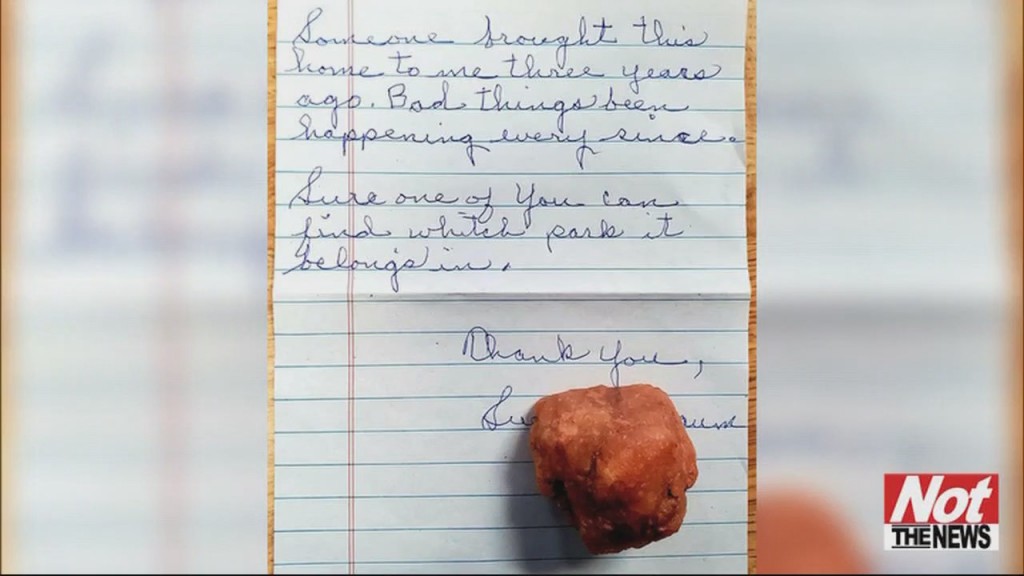 Someone brought this
home to me three years
ago. Bad things been
happening every since.
Sure one of You can
find whitch park it
belongs in.
Thank you,
Su
rum
Not
THE NEWS